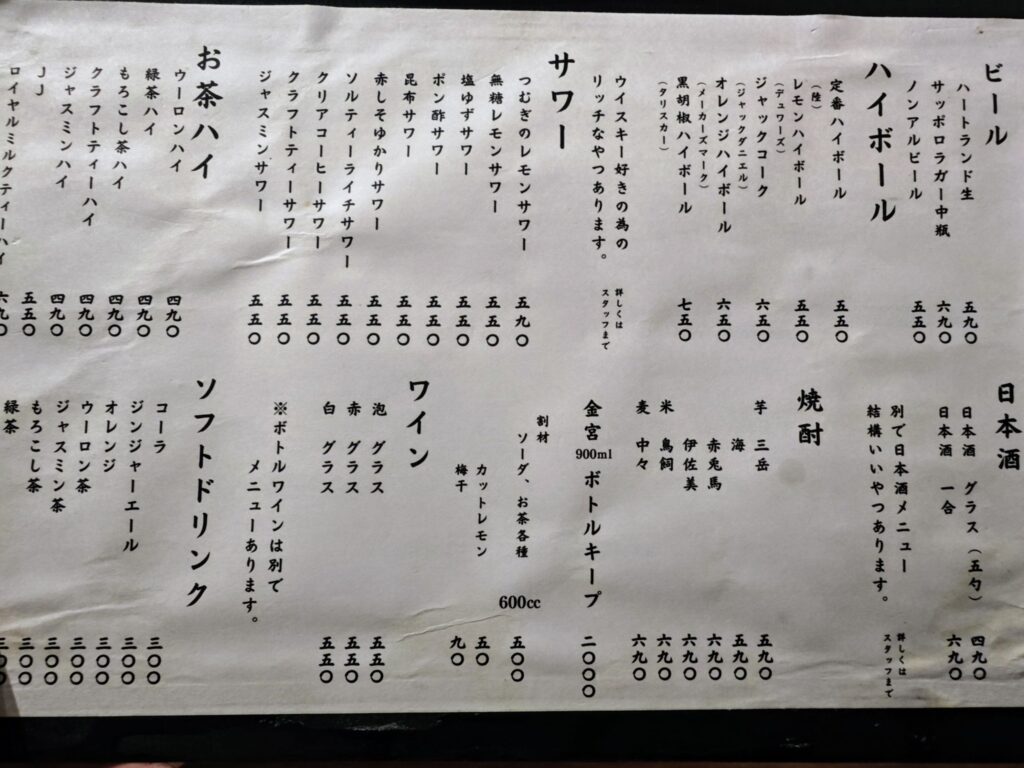 ビール
ハートランド生 五九〇
サッポロラガー中瓶 六九〇
ノンアルビール 五五〇
ハイボール
定番ハイボール 五五〇
（陸）
レモンハイボール 五五〇
（デュワーズ）
ジャックコーク 六五〇
（ジャックダニエル）
オレンジハイボール 六五〇
（メーカーズマーク）
黒胡椒ハイボール 七五〇
（タリスカー）
ウイスキー好きの為の
リッチなやつあります。
詳しくは
スタッフまで
サワー
つむぎのレモンサワー 五九〇
無糖レモンサワー 五五〇
塩ゆずサワー 五五〇
ポン酢サワー 五五〇
昆布サワー 五五〇
赤しそゆかりサワー 五五〇
ソルティーライチサワー 五五〇
クリアコーヒーサワー 五五〇
クラフトティーサワー 五五〇
ジャスミンサワー 五五〇
お茶ハイ
ウーロンハイ 四九〇
緑茶ハイ 四九〇
もろこし茶ハイ 四九〇
クラフトティーハイ 四九〇
ジャスミンハイ 四九〇
JJ 五五〇
ロイヤルミルクティーハイ 六九〇
日本酒
日本酒 グラス（五勺） 四九〇
日本酒 一合 六九〇
別で日本酒メニュー
結構いいやつあります。
詳しくは
スタッフまで
焼酎
芋 三岳 五九〇
海 五九〇
赤兎馬 六九〇
伊佐美 六九〇
米 鳥飼 六九〇
麦 中々 六九〇
金宮 900ml ボトルキープ 二〇〇〇
割材
ソーダ、お茶各種 600cc 五〇〇
カットレモン 五〇
梅干 九〇
ワイン
泡 グラス 五五〇
赤 グラス 五五〇
白 グラス 五五〇
※ボトルワインは別で
メニューあります。
ソフトドリンク
コーラ 三〇〇
ジンジャーエール 三〇〇
オレンジ 三〇〇
ウーロン茶 三〇〇
ジャスミン茶 三〇〇
もろこし茶 三〇〇
緑茶 三〇〇